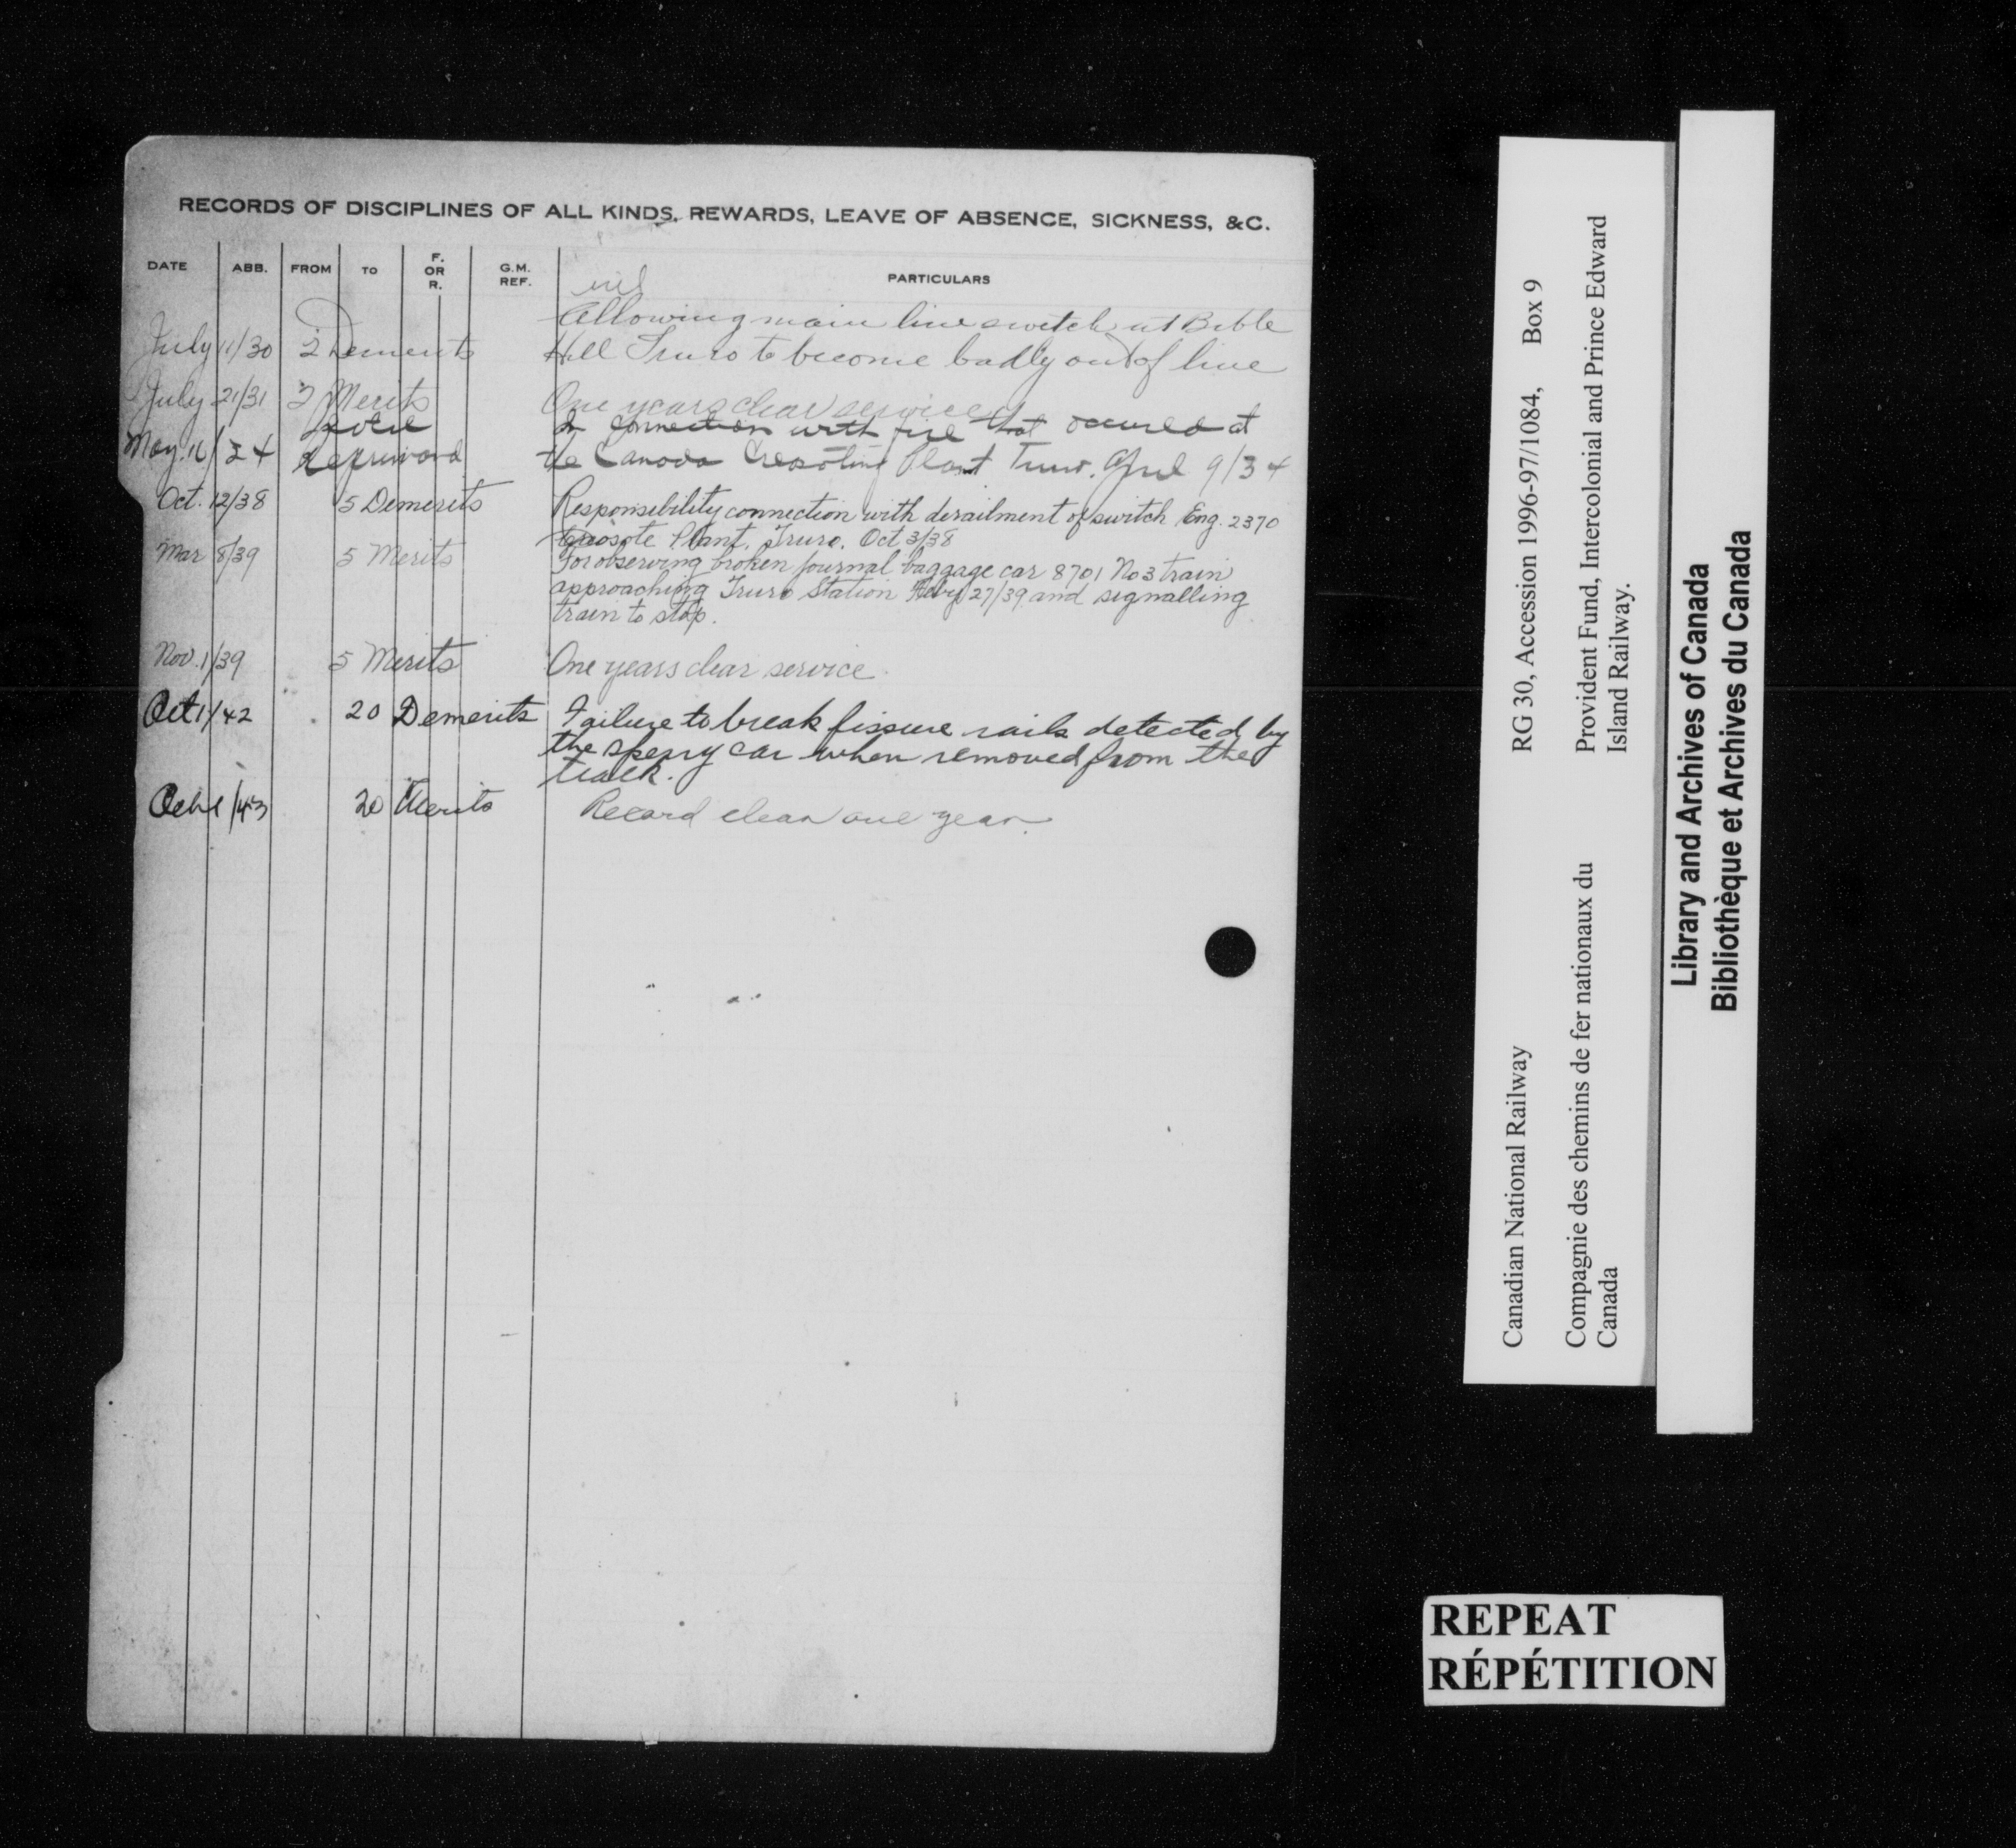 RECORDS OF DISCIPLINES OF ALL KINDS, REWARDS, LEAVE OF ABSENCE, SICKNESS, &C.
DATE ABB. FROM TO F. OR R. G.M. REF. PARTICULARS
nil
Allowing main line switch at Bible
July 11/30 2 Demerits Hill Truro to become badly out of line
July 21/31 2 Merits One years clear service
In connection with fire that occured at
May. 16/34 Reprimand the Canada Creosoting Plant Truro. April 9/34
Oct. 12/38 5 Demerits Responsibility connection with derailment of switch Eng. 2370
Creosote Plant, Truro. Oct 3/38
Mar 8/39 5 Merits For observing broken journal baggage car 8701 No 3 train
approaching Truro Station Feby 27/39 and signalling
train to stop.
Nov. 1/39 5 Merits One years clear service
Oct 1/42 20 Demerits Failure to break fissure rails detected by
the sperry car when removed from the
track.
Oct 1/43 20 Merits Record clean one year.
Canadian National Railway RG 30, Accession 1996-97/1084, Box 9
Compagnie des chemins de fer nationaux du
Canada
Provident Fund, Intercolonial and Prince Edward
Island Railway.
Library and Archives of Canada
Bibliothèque et Archives du Canada
REPEAT
RÉPÉTITION